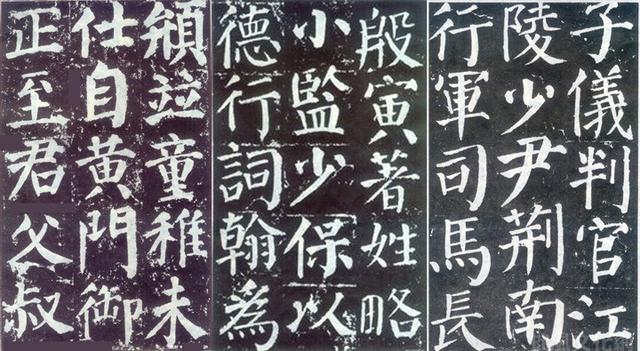 子儀判官江
陵少尹荆南
行軍司馬長
殷寅著姓略
小監少保以
德行詞翰為
頟並童稚未
仕自黃門御
正至君父叔